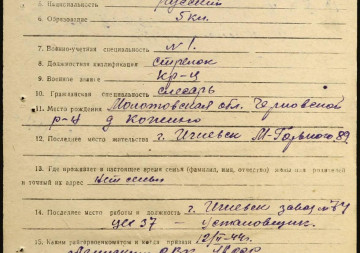 5. Национальность русский
6. Образование 5 кл.
7. Военно-учетная специальность №1.
8. Должностная квалификация стрелок
9. Военное звание кр-ц
10. Гражданская специальность слесарь
11. Место рождения Молотовская обл. Черновской
р-н д
12. Последнее место жительства г. Ижевск М-Горького 89
13. Где проживает в настоящее время семья (фамилия, имя, отчество) жены или родителей
и точный их адрес нет семьи
14. Последнее место работы и должность г. Ижевск завод №74
цех 37 — Установщик.
15. Каким райвоенкоматом и когда призван 44г.
РВК